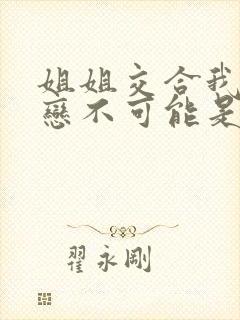 姐姐交合我
戀不可能是
翟永剛